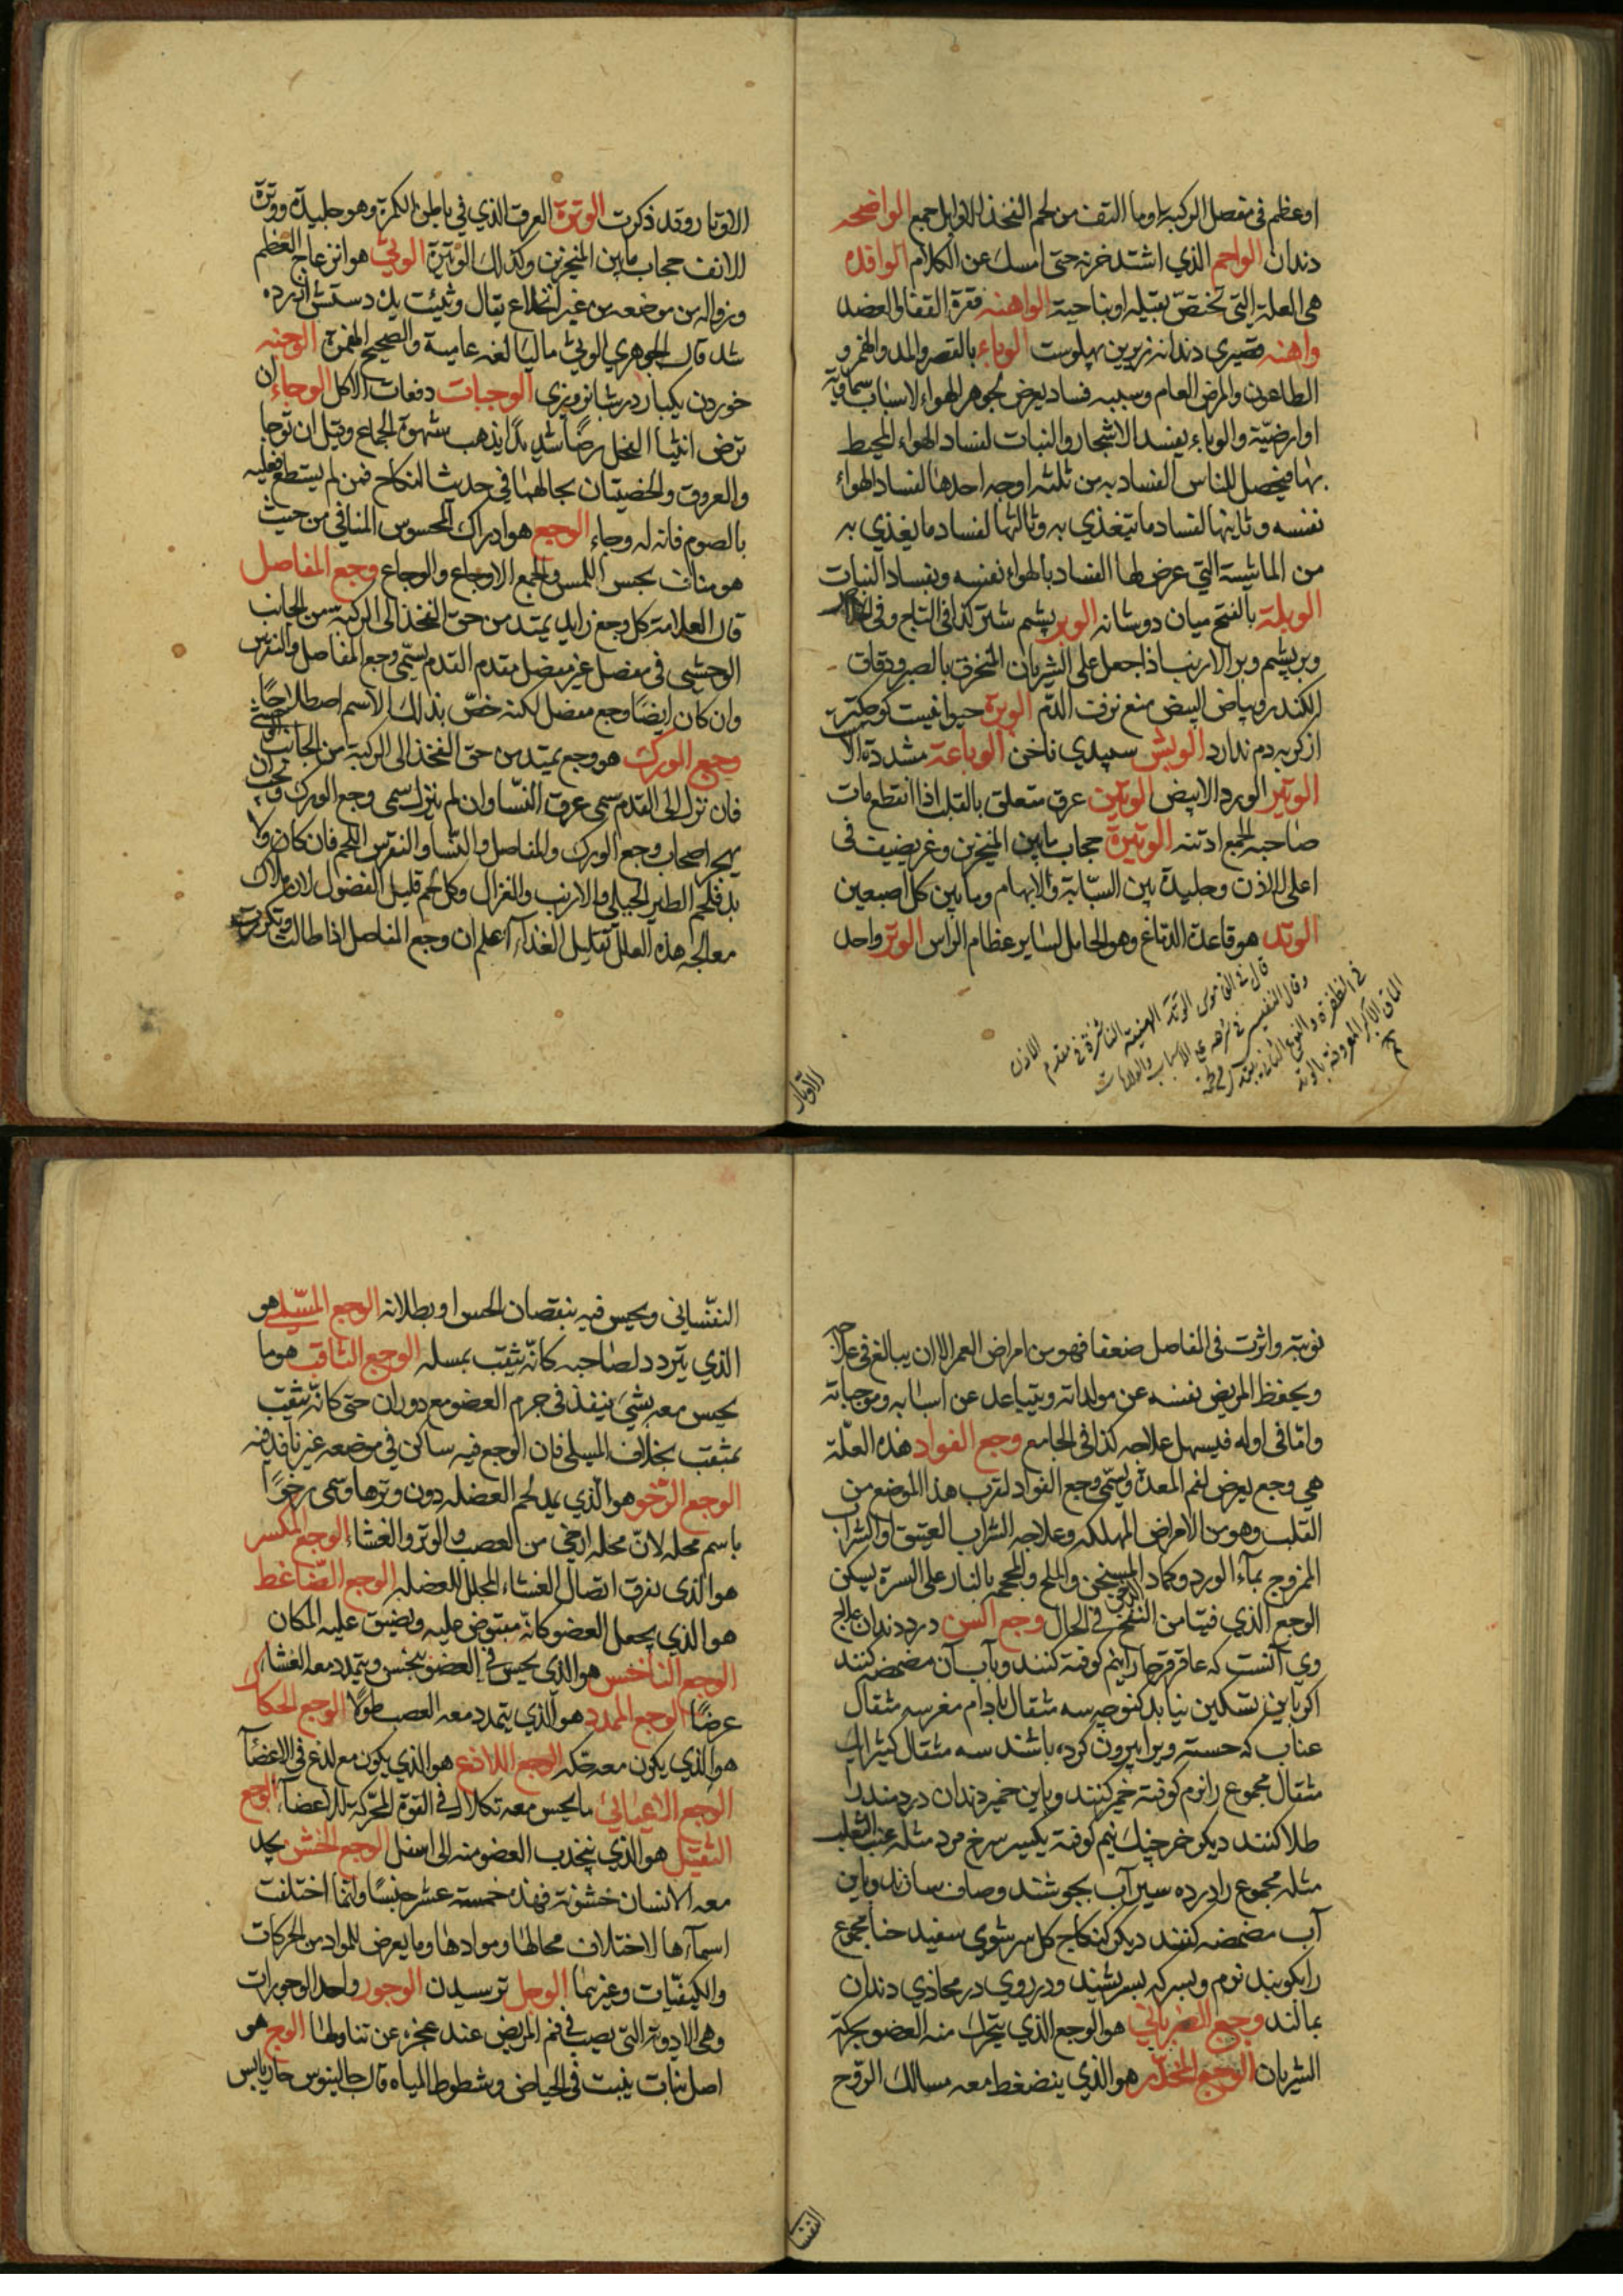 او عظم فى مفصل الركبة او ما التف من لحم الفخذ الاوابل جمع الواضحه
دندان الواجم الذي اشتد حزنه حتى امسك عن الكلام الوافده
هى العلة التى تختص بقبيله او بناحية الواهنه فقرة القفا والعضد
واهنه قصيرى دندانه زيرين پهلوست الوباء بالقصر والمد والهمز و
الطاعون والمرض العام وسببه فساد يعرض لجوهر الهواء لاسباب سماوية
او ارضيّة والوباء يفسد الاشجار والنبات لفساد الهواء المحيط
بها فيحصل للناس الفساد به من ثلثه اوجه احدها لفساد الهواء
نفسه وثانيها لفساد ما يتغذي به وثالثها لفساد ما يغذي به
من الماشية التي عرض لها الفساد بالهواء نفسه وبفساد النبات
الوبلة بالفتح ميان دو شانه الوبر پشم شتر كذا فى التاج وفى
وبر پشم وبر الارنب اذا جعل على الشريان المنخرق بالصبر ودقاق
الكندر وبياض البيض منع نزف الدّم الوبرة حيوانيست كوچكتر
از كربه دم ندارد الوبش سپيدي ناخن الوباعة مشددة الا
الوتير الورد الابيض الوتين عرق متعلق بالقلب اذا انقطع مات
صاحبه الجمع اوتنه الوتيرة حجاب ما بين المنخرين وغريضيف فى
اعلى الاذن وجليدة بين السبّابة والابهام وما بين كل اصبعين
الوتد هو قاعدة الدماغ وهو الحامل لساير عظام الراس الوتر واحد
قال فى القاموس الوتد الهنية الناشزة فى مقدم الاذن
وقال النفيسي فى شرحه على الاسباب والعلامات
فى الظفرة والنوع الثانى
الماق الاكبر المعروفة بالوتد
الاوتار
الاوتار وقد ذكرت الوترة العرق الذي في باطن الكمرة وهو جليدة ووترة
الانف حجاب ما بين المنخرين وكذلك الوتيرة الوثي هو انزعاج العظم
وزواله من موضعه من غير انخلاع يقال وثئت يده دستش ازرده
شد قال الجوهري الوثي ماليا لغه عامية والصحيح الهمزة الوجبه
خوردن يكبار در شبانروزى الوجبات دفعات الاكل الوجاء ان
ترض انثيا الفحل رضّا شديدًا يذهب شهوة الجماع وقيل ان توجا
والعروق والخصيتان بحالهما فى حديث النكاح فمن لم يستطع فعليه
بالصوم فانه له وجاء الوجع هو ادراك المحسوس المنافي من حيث
هو مناف بحس اللمس والجمع الاوجاع والوجاع وجع المفاصل
قال العلامة كل وجع زايد يمتد من حق الفخذ الى الركبة من الجانب
الوحشي فى مفصل غير مفصل مقدم القدم يسمّى وجع المفاصل والنقرس
وان كان ايضًا وجع مفصل لكنه خصّ بذلك الاسم اصطلاحًا
وجع الورك هو وجع يمتد من حق الفخذ الى الركبة من الجانب الوحشى
فان نزل الى القدم سمى عرق النّسا وان لم ينزل سمى وجع الورك ويجب ان
يهجر اصحاب وجع الورك والمفاصل والنّسا والنقرس اللحم فان كان ولا
بد فلحم الطير الجبلي والارنب والغزال وكل لحم قليل الفضول لان ملاك
معالجه هذه العلل تقليل الغذاء اعلم ان وجع المفاصل اذا طالت وتكررت
نوبته واثرت فى المفاصل ضعفا فهو من امراض العمر الا ان يبالغ فى علاجه
ويحفظ المريض نفسه عن مولداته ويتباعد عن اسبابه وموجباته
وامّا فى اوله فيسهل علاجه كذا فى الجامع وجع الفواد هذه العلّة
هي وجع يعرض لفم المعدة ويسمّى وجع الفواد لقرب هذا الموضع من
القلب وهو من الامراض المهلكه وعلاجه الشراب العتيق او الشراب
الممزوج بماء الورد وكماد المسخن والملح والمحجمه بالنار على السرة يسكن
الوجع الذي فيها من النفخ الريحى فى الحال وجع السن درد دندان علاج
وي آنست كه عاقرقرحا رانيم كوفته كنند وبآب آن مضمضه كنند
اكر باين تسكين نيابد كنوجه سه مثقال بادام مغز سه مثقال
عناب كه حسته ويرا بيرون كرده باشند سه مثقال كتيرا يك
مثقال مجموع را نرم كوفته خمر كنند وباين خمير دندان دردمند را
طلا كنند ديكر خرچنك نيم كوفته يكسير سرخ مرد مثله عنب الثعلب
مثله مجموع را در ده سير آب بجوشند وصاف سازند وباين
آب مضمضه كنند ديكر كنكاج كل سرشوى سفيد حنا مجموع
را بكوبند نرم وبسركه بسريشند ودر روي در محاذي دندان
بمالند وجع الضرباني هو الوجع الذي يتحرك منه العضو بحركة
الشريان الوجع الخدر هو الذي ينضغط معه مسالك الروح
النفسا
النفسّاني ويحس فيه بنقصان الحس او بطلانه الوجع المسّلي هو
الذي يتردد لصاحبه كانّه يثقب بمسله الوجع الثاقب هو ما
يحس معه بشيء ينفذ فى جرم العضو مع دوران حتى كانّه يثقب
بمثقب بخلاف المسلي فان الوجع فيه ساكن في موضعه غير نافذ فيه
الوجع الرّخو هو الّذي يمد لحم العضله دون وترها وسمى رخوًا
باسم محله لانّ محله ارخى من العصب والوتر والغشاء الوجع المكسر
هو الذى يفرق اتصال الغشاء المجلل للعضله الوجع الضّاغط
هو الذي يجعل العضو كانّه مقبوض عليه ويضيق عليه المكان
الوجع النّاخس هو الذي يحس في العضو بنخس ويتمدد معه الغشاء
عرضًا الوجع الممدد هو الّذي يتمدد معه العصب طولًا الوجع الحكاك
هو الذي يكون معه حكه الوجع اللاذع هو الذي يكون مع لذع في الاعضآ
الوجع الاعيائى ما يحس معه تكلالا فى القوة المحّركة للاعضآء الوجع
الثقيل هو الذي ينجذب العضو منه الى اسفل الوجع الخشن يجد
معه الانسان خشونة فهذه خمسة عشر جنسًا وانّما اختلفت
اسمآءها لاختلاف محالها وموادها وما يعرض للمواد من الحركات
والكيفيّات وغيرها الوجل ترسيدن الوجور واحد الوجورات
وهى الادوية التى يصب فى فم المريض عند عجزه عن تناولها الوج هو
اصل نبات ينبت فى الحياض وشطوط المياه قال جالينوس حار يابس